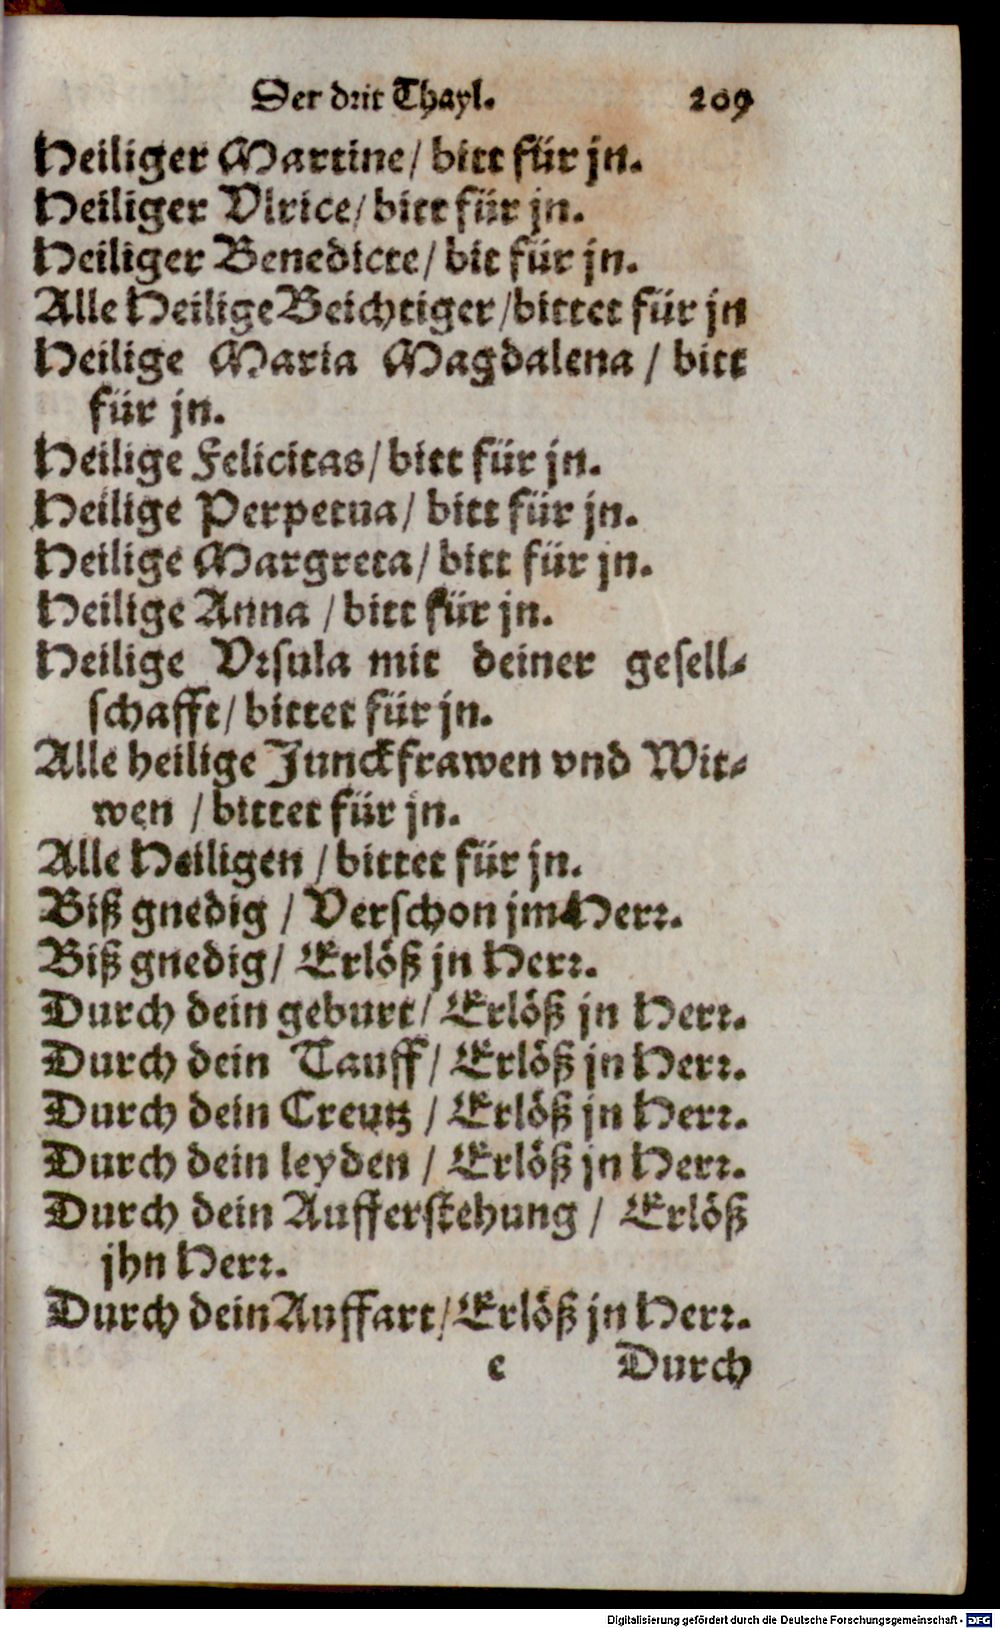 Der drit Thayl. 209
Heiliger Martine/ bitt für jn.
Heiliger Vlrice/ bitt für jn.
Heiliger Benedicte/ bit für jn.
Alle Heilige Beichtiger/ bittet für jn
Heilige Maria Magdalena / bitt
für jn.
Heilige Felicitas/ bitt für jn.
Heilige Perpetua/ bitt für jn.
Heilige Margreta/ bitt für jn.
Heilige Anna / bitt für jn.
Heilige Vrsula mit deiner gesell-
schafft/ bittet für jn.
Alle heilige Junckfrawen vnd Wit-
wen / bittet für jn.
Alle Heiligen / bittet für jn.
Biß gnedig / Verschon jm Herr.
Biß gnedig/ Erlöß jn Herr.
Durch dein geburt/ Erlöß jn Herr.
Durch dein Tauff/ Erlöß jn Herr.
Durch dein Creutz / Erlöß jn Herr.
Durch dein leyden / Erlöß jn Herr.
Durch dein Aufferstehung / Erlöß
jhn Herr.
Durch dein Auffart/ Erlöß jn Herr.
c Durch
Digitalisierung gefördert durch die Deutsche Forschungsgemeinschaft - DFG